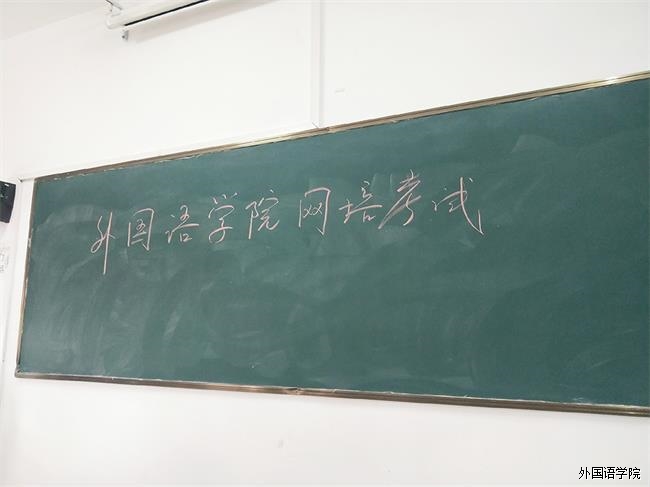 外国语学院网培考试
外国语学院